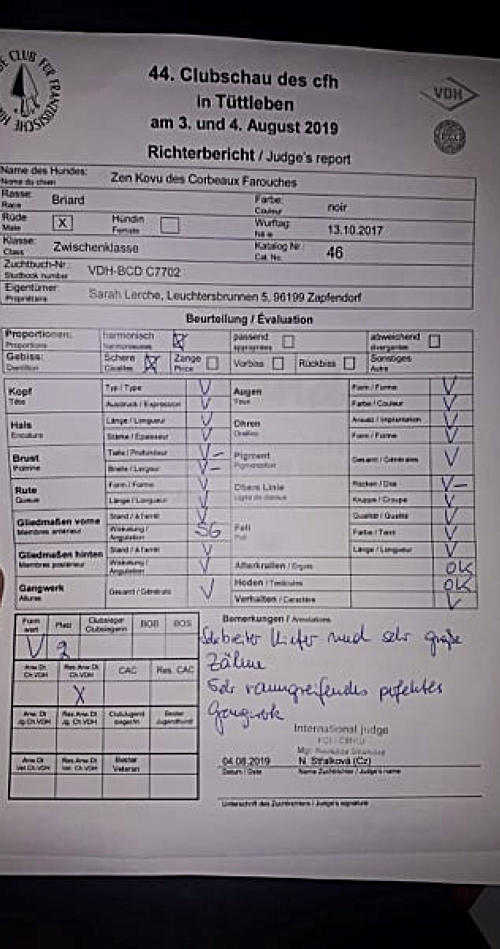 44. Clubschau des cfh
in Tüttleben
am 3. und 4. August 2019
VDH
Richterbericht / Judge's report
Name des Hundes: Zen Kovu des Corbeaux Farouches
Nom du chien
Rasse: Briard Farbe: noir
Race Couleur
Rüde X Hündin Wurftag: 13.10.2017
Male Femelle
Klasse: Zwischenklasse Katalog Nr.: 46
Class Cat. No.
Zuchtbuch-Nr.: VDH-BCD C7702
Studbook number
Eigentümer: Sarah Lerche, Leuchtersbrunnen 5, 96199 Zapfendorf
Propriétaire
Beurteilung / Évaluation
Proportionen: harmonisch passend abweichend
Proportions
Gebiss: Schere Zange Vorbiss Rückbiss Sonstiges
Dentition Autre
Kopf Typ / Type V Augen Form / Forme V
Tête Ausdruck / Expression V Yeux Farbe / Couleur V
Hals Länge / Longueur V Ohren Ansatz / Implantation V
Encolure Stärke / Épaisseur V Oreilles Form / Forme V
Brust Tiefe / Profondeur V- Pigment Gesamt / Générales V
Poitrine Breite / Largeur V- Pigmentation
Rute Form / Forme V Obere Linie Rücken / Dos V-
Queue Länge / Longueur V Kruppe / Croupe V
Gliedmaßen vorne Stand V Fell Qualität / Qualité V
Membres antérieur Winkelung / Angulation SG Farbe / Teint V
Gliedmaßen hinten Stand V Länge / Longueur V
Membres postérieur Winkelung / Angulation V Afterkrallen / Ergots OK
Gangwerk Gesamt / Générale V Hoden / Testicules OK
Allures Verhalten / Caractère V
Form wert Platz Clubsieger BOB BOS
V 2
Bemerkungen / Annotations
Kiefer und sehr große
Zähne
Sehr raumgreifendes perfektes
Gangwerk
Anw. Dt. Ch. VDH Res. Anw. Dt. Ch. VDH CAC Res. CAC
X
Anw. Dt. Jg. Ch. VDH Res. Anw. Dt. Jg. Ch. VDH Clubjugend Bester
Anw. Dt. Vet. Ch. VDH Res. Anw. Dt. Vet. Ch. VDH Bester Veteran
International judge
04.08.2019 N. Strálková (Cz)
Datum / Date Name Zuchtrichter / Judge's name
Unterschrift des Zuchtrichters / Judge's signature